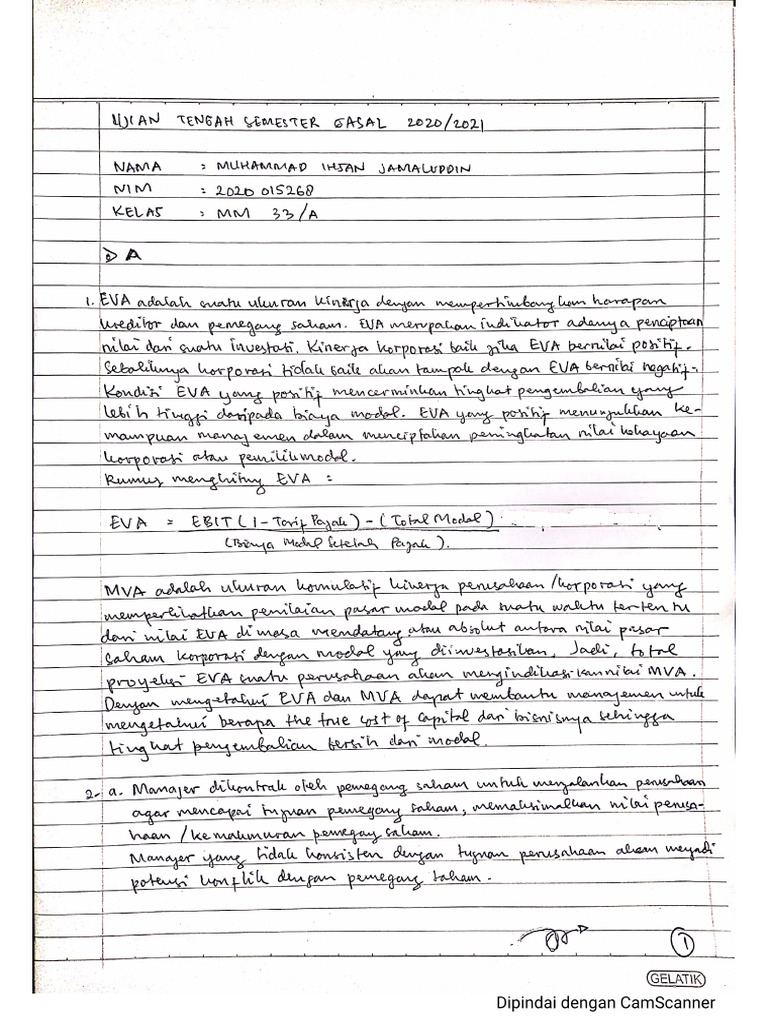 UJIAN TENGAH SEMESTER GASAL 2020/2021
NAMA : MUHAMMAD IHSAN JAMALUDDIN
NIM : 2020 015268
KELAS : MM 33/A
A
1. EVA adalah suatu ukuran kinerja dengan mempertimbangkan harapan
kreditor dan pemegang saham. EVA merupakan indikator adanya penciptaan
nilai dari suatu investasi. Kinerja korporasi baik jika EVA bernilai positif.
Sebaliknya korporasi tidak baik akan tampak dengan EVA bernilai negatif.
Kondisi EVA yang positif mencerminkan tingkat pengembalian yang
lebih tinggi daripada biaya modal. EVA yang positif menunjukkan ke-
mampuan manajemen dalam menciptakan peningkatan nilai kekayaan
korporasi atau pemilik modal.
Rumus menghitung EVA :
EVA = EBIT (1 - Tarif Pajak) - (Total Modal)
(Biaya Modal Setelah Pajak).
MVA adalah ukuran komulatif kinerja perusahaan/korporasi yang
memperlihatkan penilaian pasar modal pada suatu waktu tertentu
dari nilai EVA di masa mendatang atau absolut antara nilai pasar
saham korporasi dengan modal yang diinvestasikan, Jadi, total
proyeksi EVA suatu perusahaan akan mengindikasikan nilai MVA.
Dengan mengetahui EVA dan MVA dapat membantu managemen untuk
mengetahui berapa the true cost of capital dari bisnisnya sehingga
tingkat pengembalian bersih dari modal.
2. a. Manajer dikontrak oleh pemegang saham untuk menjalankan perusahaan
agar mencapai tujuan pemegang saham, memaksimalkan nilai perusa-
haan / kemakmuran pemegang saham.
Manajer yang tidak konsisten dengan tujuan perusahaan akan menjadi
potensi konflik dengan pemegang saham.
1
GELATIK
Dipindai dengan CamScanner